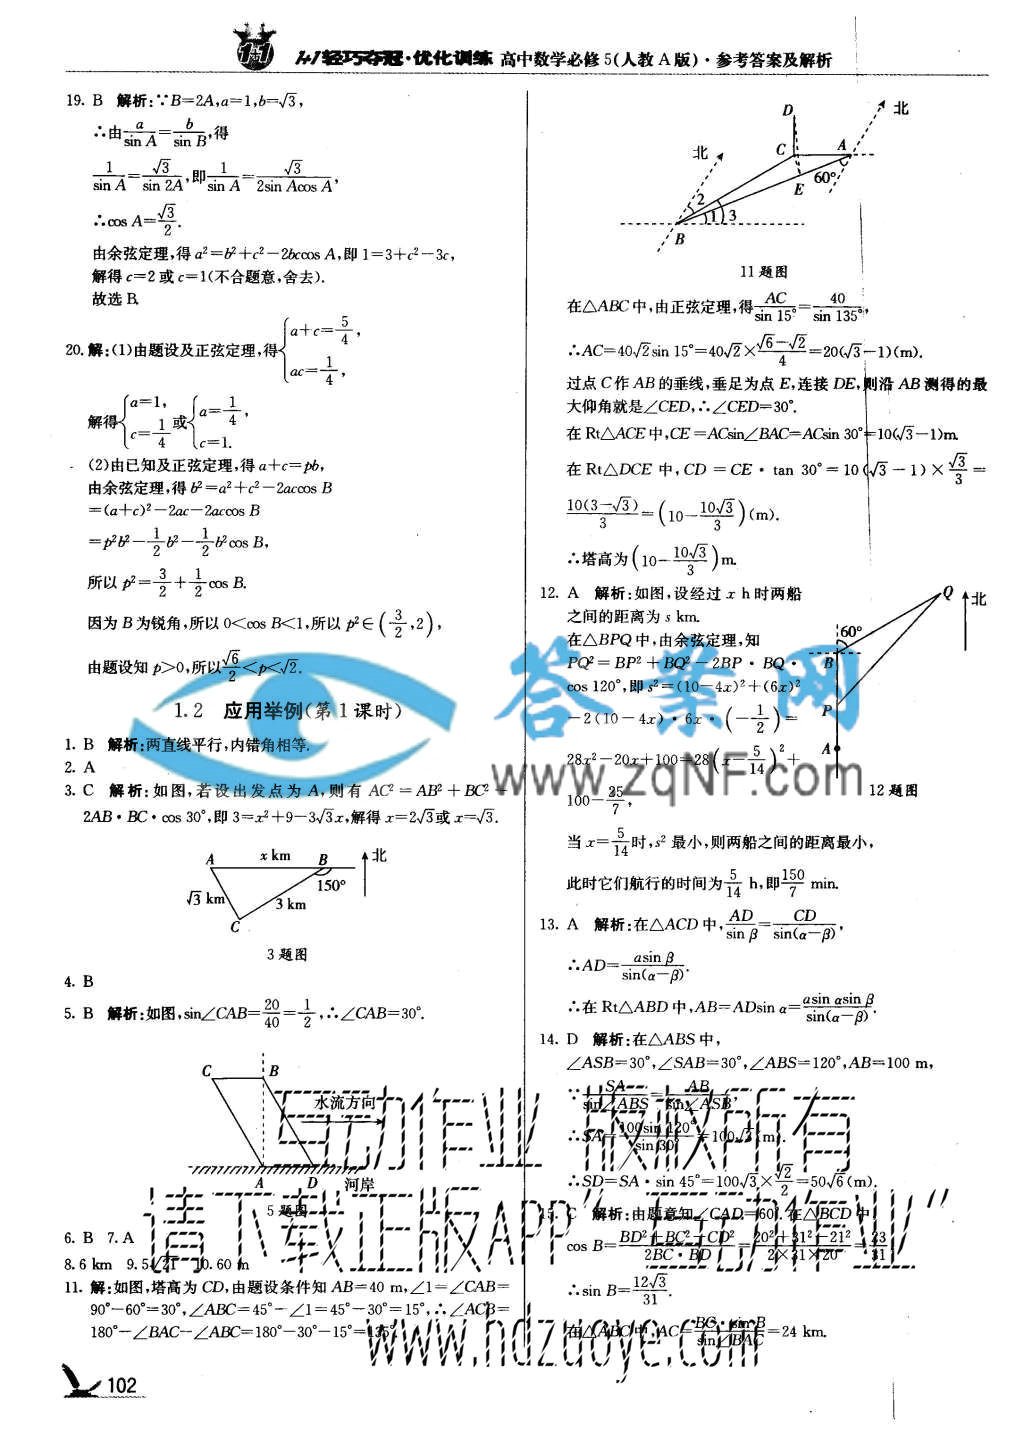 1+1轻巧夺冠·优化训练 高中数学必修5(人教A版)·参考答案及解析
19. B 解析:∵B=2A,a=1,b=√3,
∴由a/sin A=b/sin B,得
1/sin A=√3/sin 2A,即1/sin A=√3/2sin Acos A,
∴cos A=√3/2.
由余弦定理,得a²=b²+c²-2bccos A,即1=3+c²-3c,
解得c=2或c=1(不合题意,舍去).
故选B.
20. 解:(1)由题设及正弦定理,得{a+c=5/4, ac=1/4,
解得{a=1, c=1/4或{a=1/4, c=1.
(2)由已知及正弦定理,得a+c=pb,
由余弦定理,得b²=a²+c²-2accos B
=(a+c)²-2ac-2accos B
=p²b²-1/2b²-1/2b²cos B,
所以p²=3/2+1/2cos B.
因为B为锐角,所以0<cos B<1,所以p²∈(3/2,2),
由题设知p>0,所以√6/2<p<√2.
1.2 应用举例(第1课时)
1. B 解析:两直线平行,内错角相等.
2. A
3. C 解析:如图,若设出发点为A,则有AC²=AB²+BC²-
2AB·BC·cos 30°,即3=x²+9-3√3x,解得x=2√3或x=√3.
A x km B 北
150°
√3 km 3 km
C
3题图
4. B
5. B 解析:如图,sin∠CAB=20/40=1/2,∴∠CAB=30°.
C B
水流方向
A D 河岸
5题图
6. B 7. A
8. 6 km 9. 5√21 10. 60 m
11. 解:如图,塔高为CD,由题设条件知AB=40 m,∠1=∠CAB=
90°-60°=30°,∠ABC=45°-∠1=45°-30°=15°,∴∠ACB=
180°-∠BAC-∠ABC=180°-30°-15°=135°.
102
D 北
北 C A
E 60°
2 1 3
B
11题图
在△ABC中,由正弦定理,得AC/sin 15°=40/sin 135°,
∴AC=40√2sin 15°=40√2×(√6-√2)/4=20(√3-1)(m).
过点C作AB的垂线,垂足为点E,连接DE,则沿AB测得的最
大仰角就是∠CED,∴∠CED=30°.
在Rt△ACE中,CE=ACsin∠BAC=ACsin 30°=10(√3-1)m.
在Rt△DCE中,CD=CE·tan 30°=10(√3-1)×√3/3=
10(3-√3)/3=(10-10√3/3)(m).
∴塔高为(10-10√3/3)m.
12. A 解析:如图,设经过x h时两船
之间的距离为s km.
在△BPQ中,由余弦定理,知
PQ²=BP²+BQ²-2BP·BQ·
cos 120°,即s²=(10-4x)²+(6x)²
-2(10-4x)·6x·(-1/2)=
28x²-20x+100=28(x-5/14)²+
100-25/7,
Q 北
60°
B
P
A
12题图
当x=5/14时,s²最小,则两船之间的距离最小,
此时它们航行的时间为5/14 h,即150/7 min.
13. A 解析:在△ACD中,AD/sin β=CD/sin(α-β),
∴AD=asin β/sin(α-β).
∴在Rt△ABD中,AB=ADsin α=asin αsin β/sin(α-β).
14. D 解析:在△ABS中,
∠ASB=30°,∠SAB=30°,∠ABS=120°,AB=100 m,
∵SA/sin∠ABS=AB/sin∠ASB,
∴SA=100sin 120°/sin 30°=100√3(m).
∴SD=SA·sin 45°=100√3×√2/2=50√6(m).
15. C 解析:由题意知∠CAD=60°.在△BCD中
cos B=(BD²+BC²-CD²)/2BC·BD=(20²+31²-21²)/2×31×20=23/31
∴sin B=12√3/31.
在△ABC中,AC=BC·sin B/sin∠BAC=24 km.
答案网
www.zqNF.com
互动作业 版权所有
请下载正版APP“互动作业”
www.hdzuoye.com